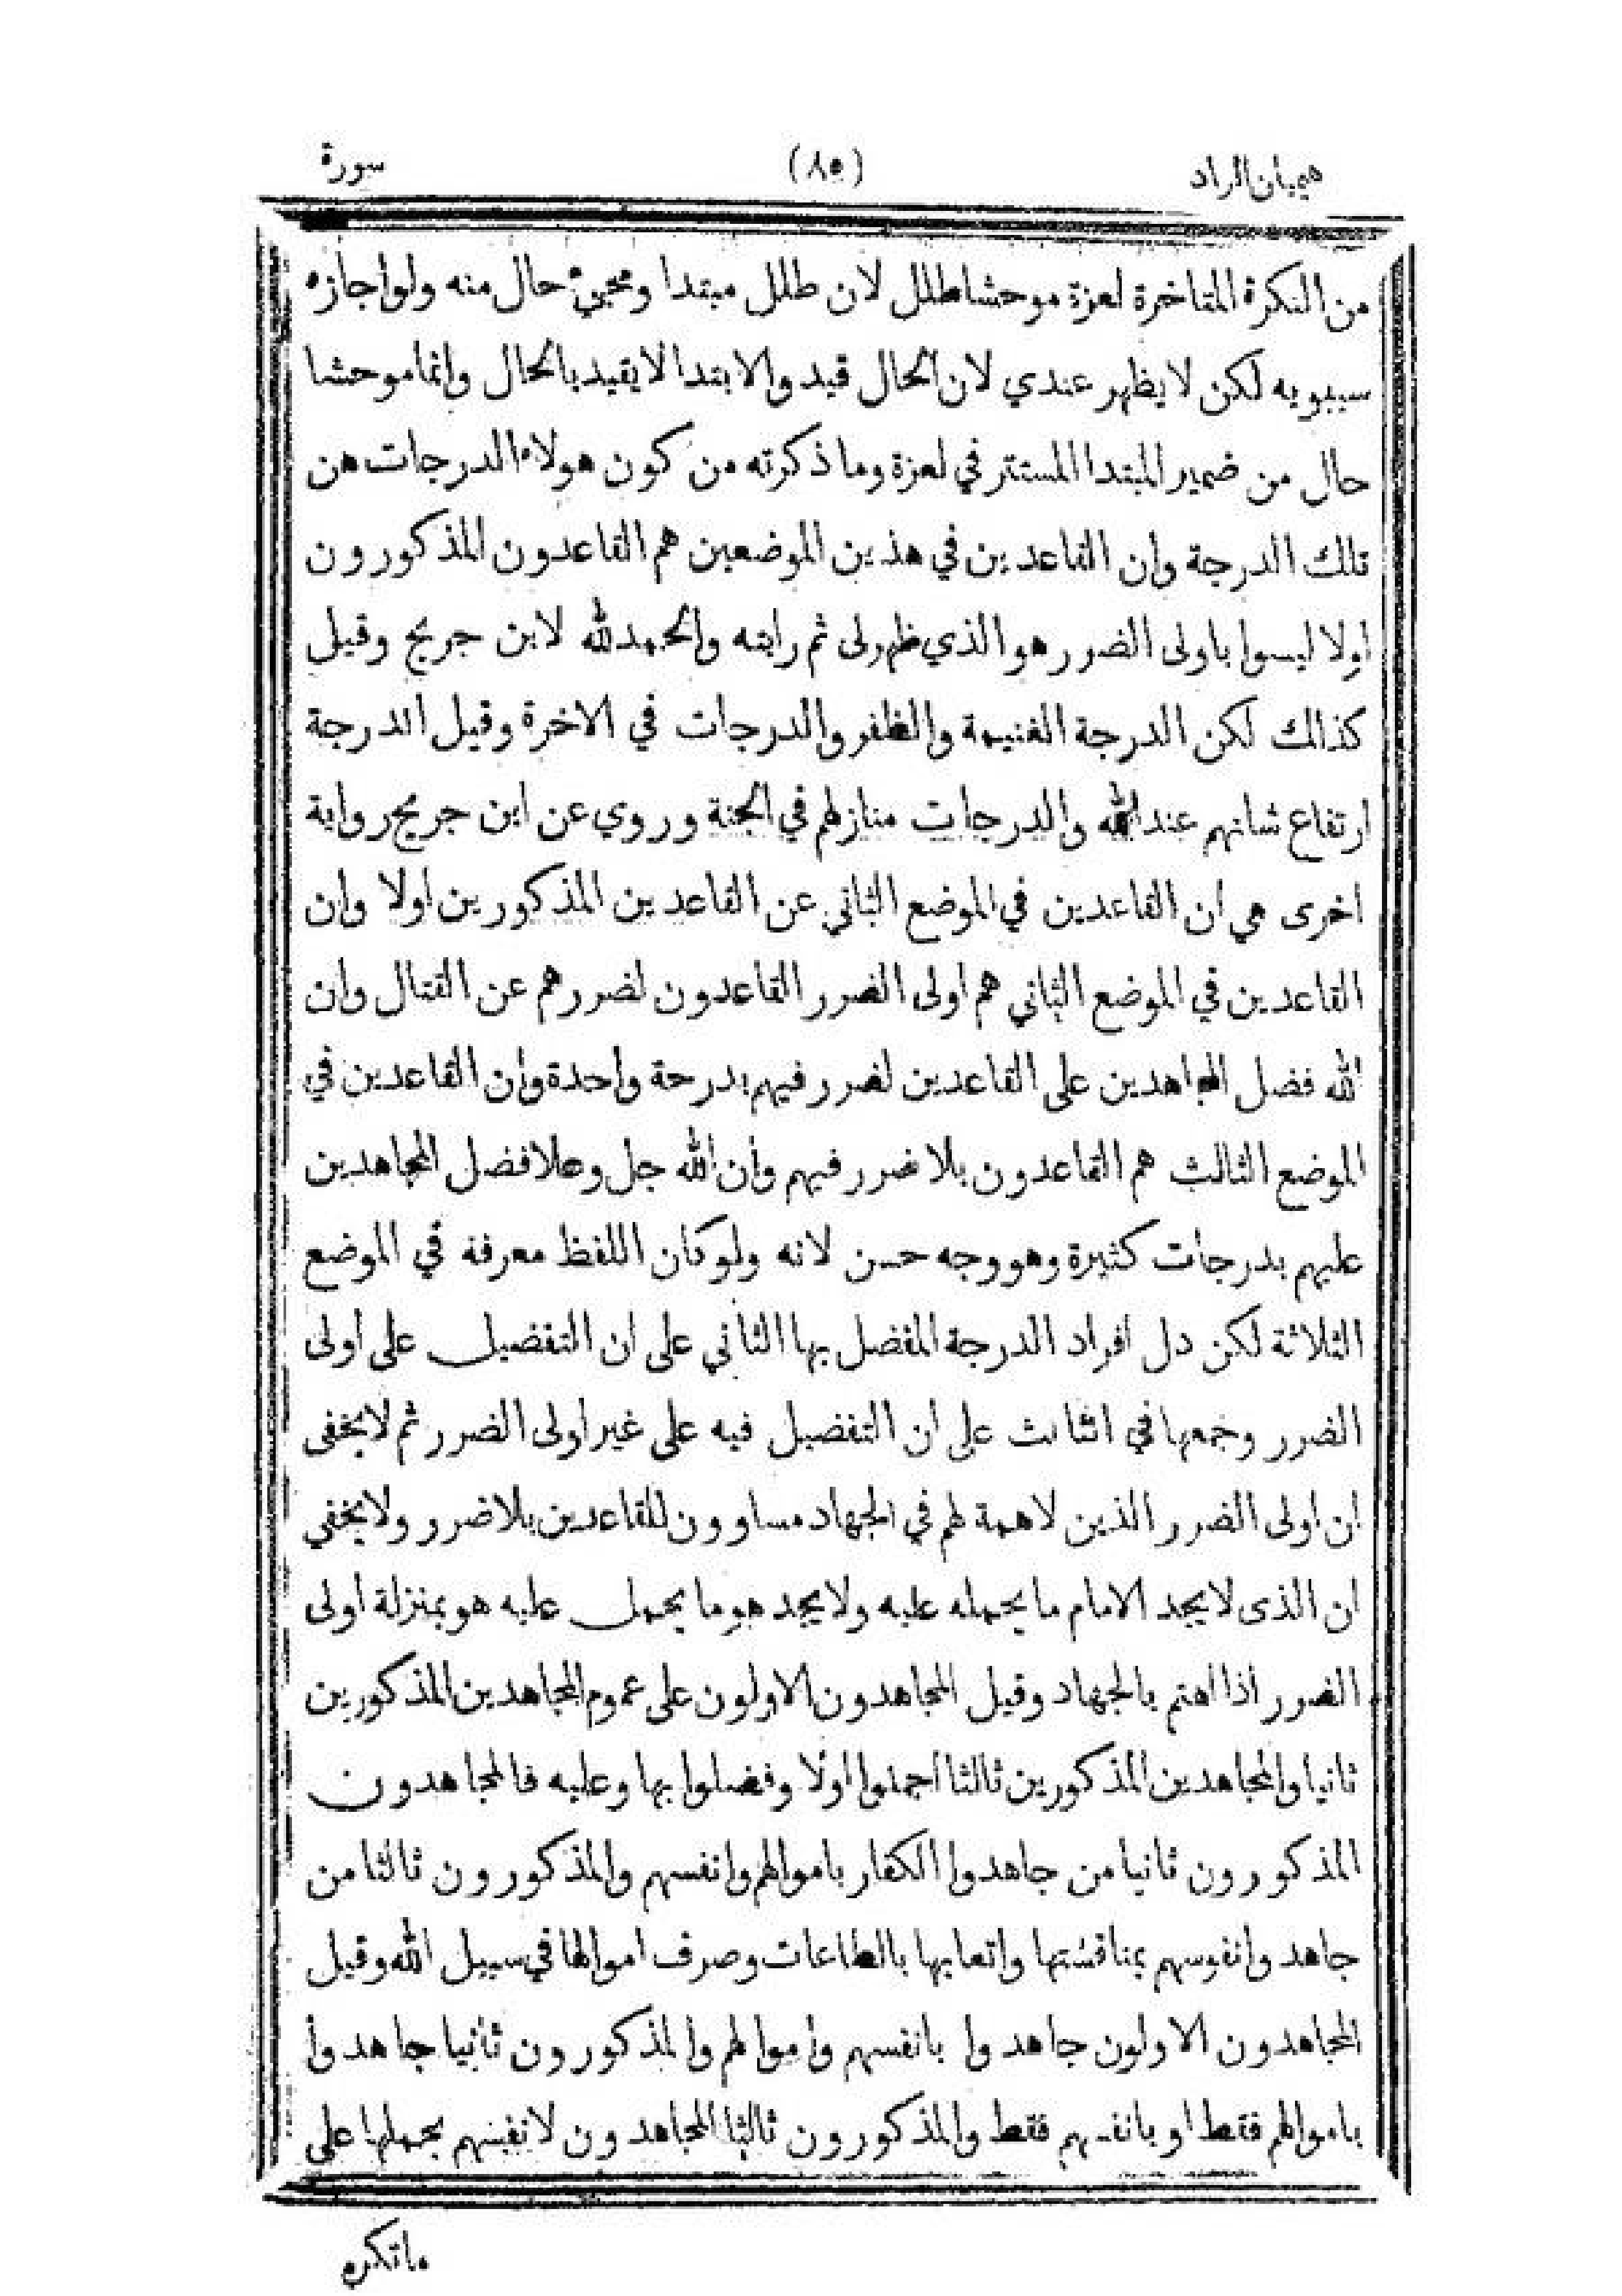 هميان الزاد (٨٥) سورة
من النكرة المتاخرة لعزة موحشا طلل لان طلل مبتدا ومجيئ حال منه ولو اجازه
سيبويه لكن لا يظهر عندي لان الحال قيد والابتدا لا يقيد بالحال وانما موحشا
حال من ضمير المبتدا المستتر في لعزة وما ذكرته من كون هولاء الدرجات هن
تلك الدرجة وان القاعدين في هذين الموضعين هم القاعدون المذكورون
اولا ليسوا باولى الضرر هو الذي ظهر لى ثم رايته والحمد لله لابن جريج وقيل
كذالك لكن الدرجة الغنيمة والظفر والدرجات في الاخرة وقيل الدرجة
ارتفاع شانهم عند الله والدرجات منازلهم في الجنة وروي عن ابن جريج رواية
اخرى هي ان القاعدين في الموضع الثاني عن القاعدين المذكورين اولا وان
القاعدين في الموضع الثاني هم اولى الضرر القاعدون لضررهم عن القتال وان
الله فضل المجاهدين على القاعدين لضرر فيهم بدرحة واحدة وان القاعدين في
الموضع الثالث هم القاعدون بلا ضرر فيهم وان الله جل وعلا فضل المجاهدين
عليهم بدرجات كثيرة وهو وجه حسن لانه ولو كان اللفظ معرفة في الموضع
الثلاثة لكن دل افراد الدرجة المفضل بها الثاني على ان التفضيل على اولى
الضرر وجمعها في الثالث على ان التفضيل فيه على غير اولى الضرر ثم لا يخفى
ان اولى الضرر الذين لا همة لهم في الجهاد مساوون للقاعدين بلا ضرر ولا يخفى
ان الذى لا يجد الامام ما يحمله عليه ولا يجد هو ما يحمل عليه هو بمنزلة اولى
الضرر اذا اهتم بالجهاد وقيل المجاهدون الاولون على عموم المجاهدين المذكورين
ثانيا والمجاهدين المذكورين ثالثا اجملوا اولا وفضلوا بها وعليه فالمجاهدون
المذكورون ثانيا من جاهدوا الكفار باموالهم وانفسهم والمذكورون ثالثا من
جاهد وانفوسهم بمنافستها واتعابها بالطاعات وصرف اموالها في سبيل الله وقيل
المجاهدون الاولون جاهدوا بانفسهم واموالهم والمذكورون ثانيا جاهدوا
باموالهم فقط او بانفسهم فقط والمذكورون ثالثا المجاهدون لانفسهم بحملها على
ماتكره